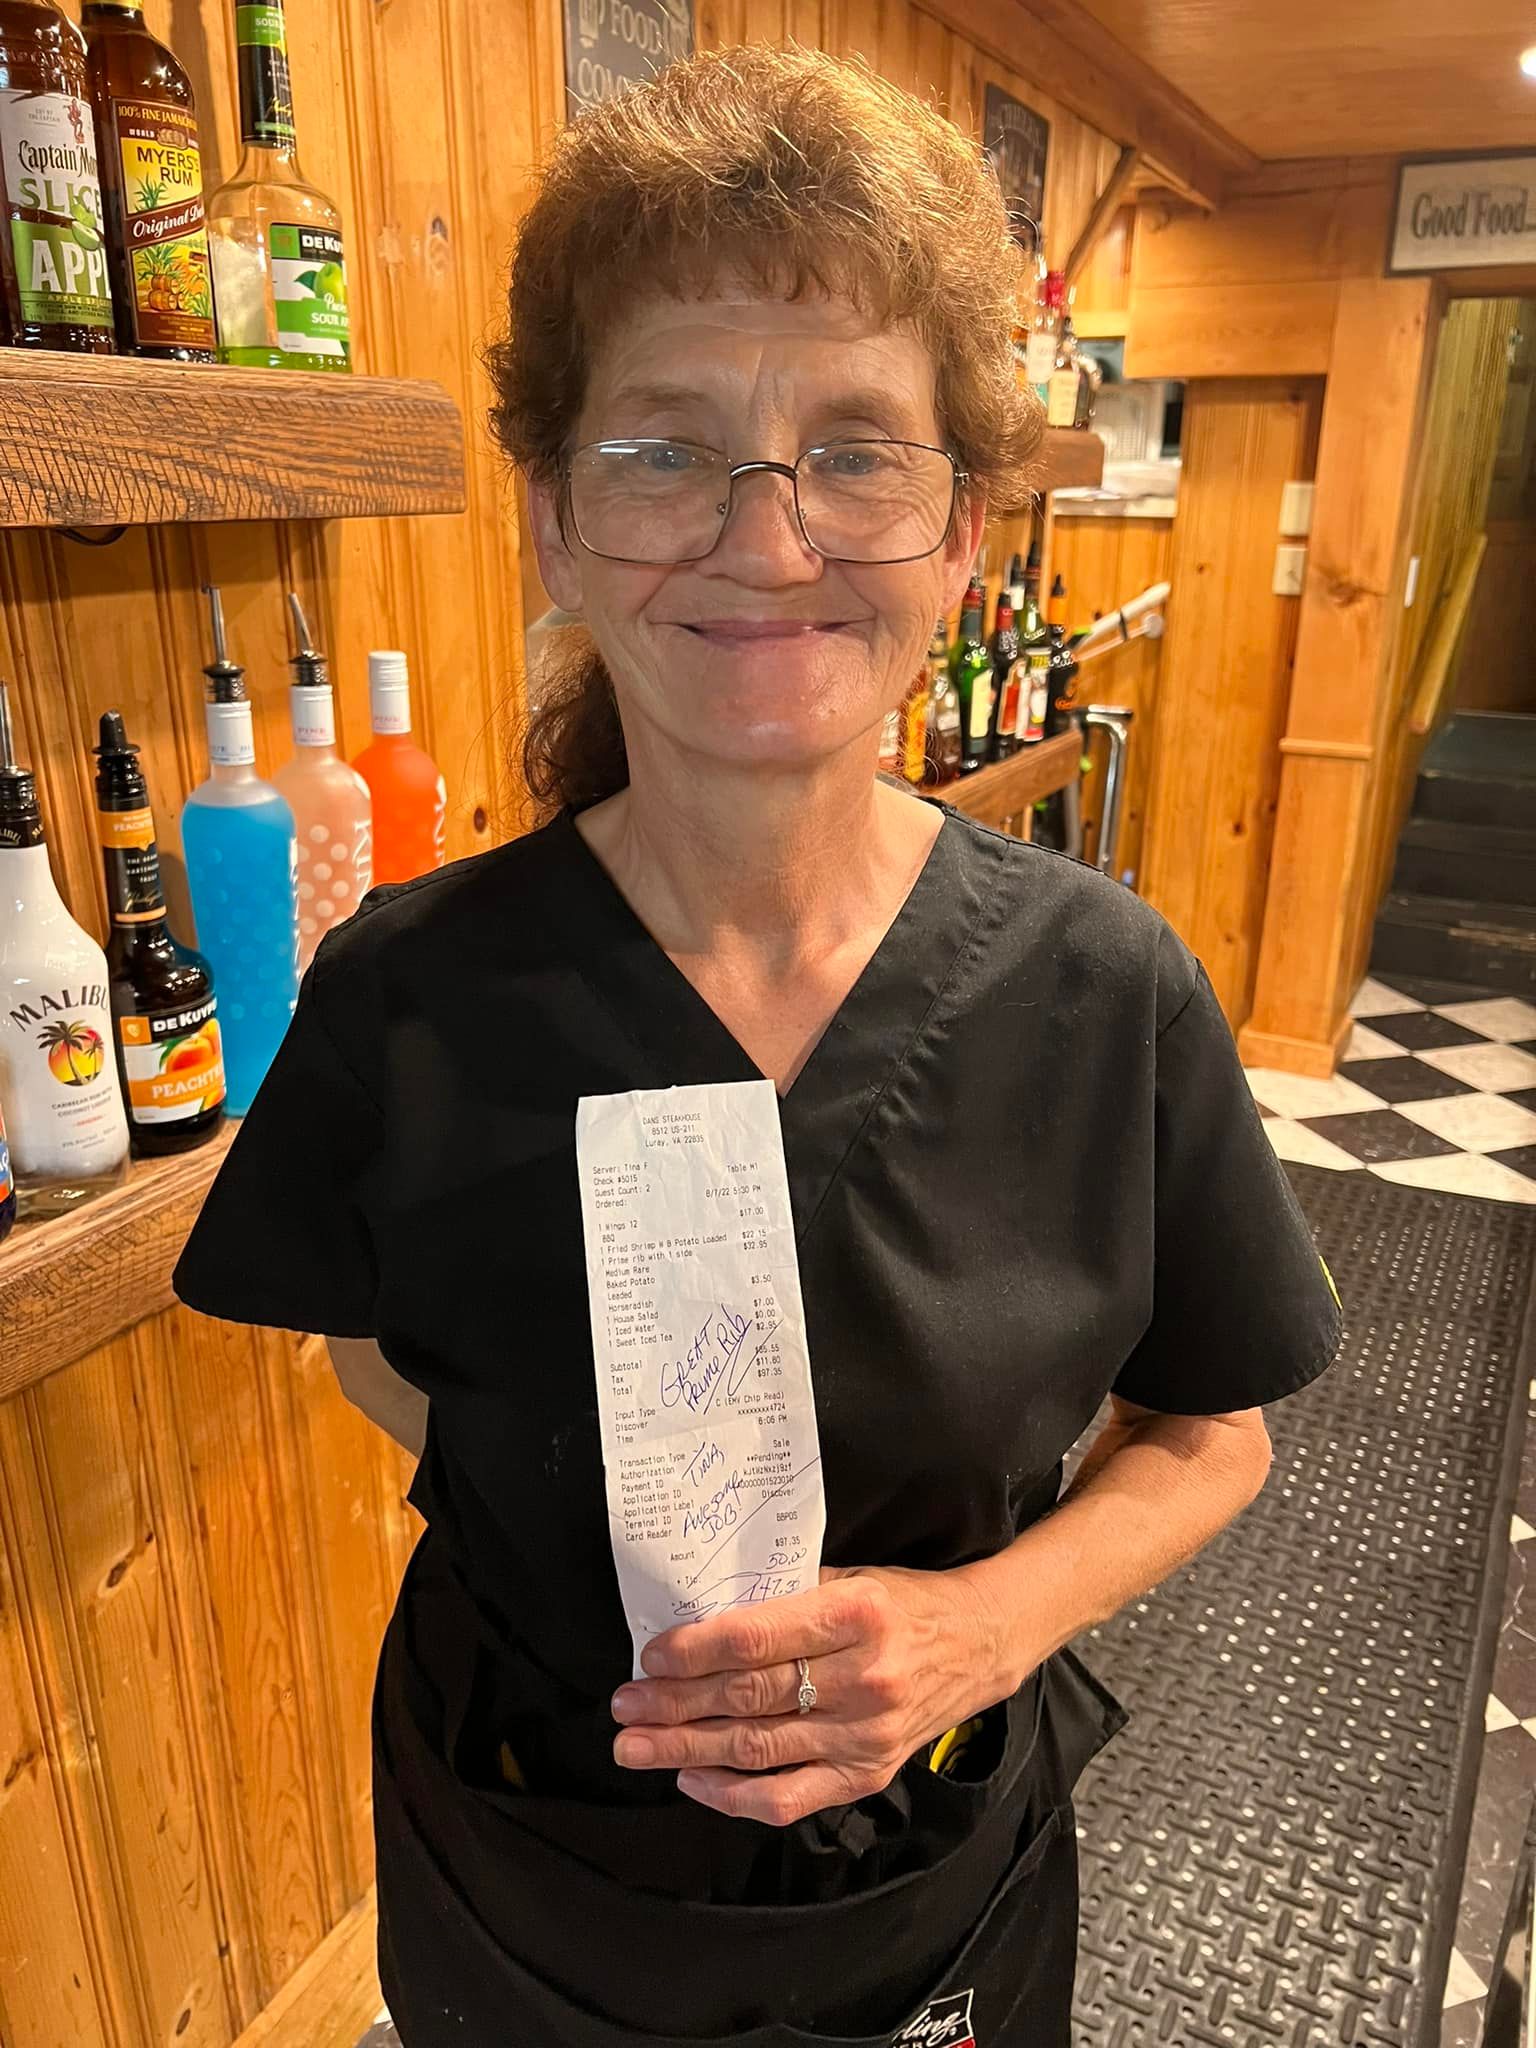 FOOD
Good Food
Captain
SLICE
APP
100% FINE JAMAICAN
WORLD
MYERS'S
RUM
Original Da
SOUR
DE KU
SOUR
MALIBU
CARIBBEAN RUM WITH
COCONUT LIQUEUR
ORIGINAL
DE KUYP
PEACHT
DANS STEAKHOUSE
8512 US-211
Luray, VA 22835
Server: Tina F
Table M1
Check #5015
Guest Count: 2
8/7/22 5:30 PM
Ordered:
1 Wings 12 $17.00
BBQ
1 Fried Shrimp W B Potato Loaded $22.15
1 Prime rib with 1 side $32.95
Medium Rare
Baked Potato
Loaded $3.50
Horseradish
1 House Salad $7.00
1 Iced Water $0.00
1 Sweet Iced Tea $2.95
Subtotal $85.55
Tax $11.80
Total $97.35
GREAT
PRIME Rib
Input Type C (EMV Chip Read)
Discover xxxxxxxx4724
Time 6:06 PM
Transaction Type Sale
Authorization **Pending**
Payment ID
Application ID
Application Label Discover
Terminal ID
Card Reader BBPOS
TINA,
AWESOME
JOB!
Amount $97.35
+ Tip: 50.00
= Total: 147.35